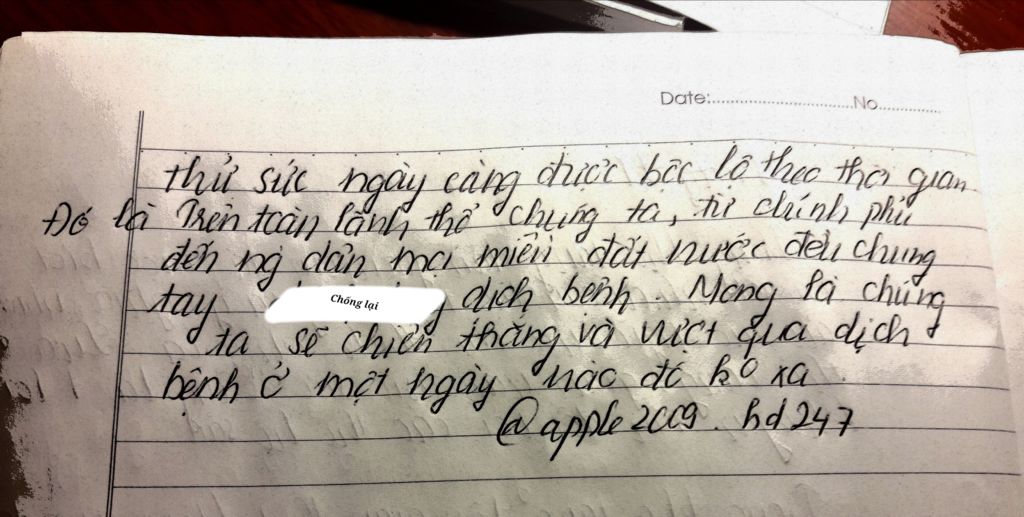 Date: No
thử sức ngày càng được bộc lộ theo thời gian.
Đó là Trên toàn lãnh thổ chúng ta, từ chính phủ
đến ng dân mọi miền đất nước đều chung
tay Chống lại dịch bệnh. Mong là chúng
ta sẽ chiến thắng và vượt qua dịch
bệnh ở một ngày nào đó ko xa.
@apple2009.hd247